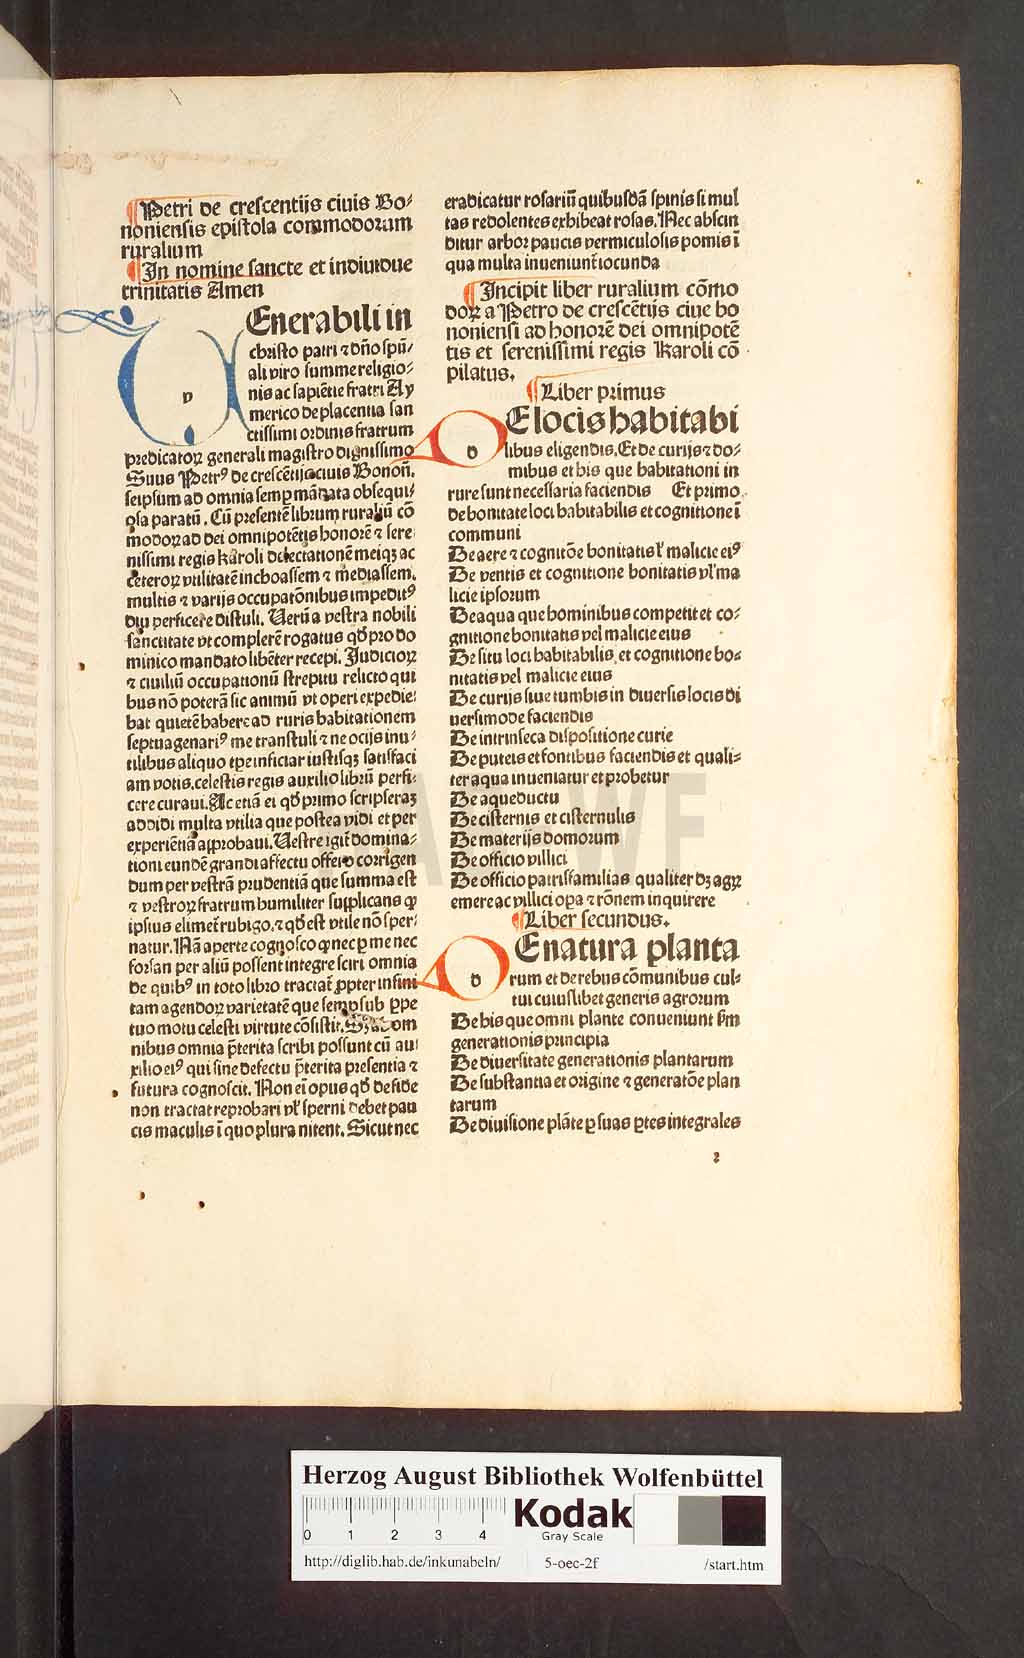 Petri de crescentijs ciuis Bo⸗
noniensis epistola commodorum
ruralium
In nomine sancte et indiuidue
trinitatis Amen
VEnerabili in
christo patri ⁊ dn̄o spū⸗
ali viro summe religio⸗
nis ac sapiētie fratri Ay
merico de placentia san
ctissimi ordinis fratrum
predicatoꝝ generali magistro dignissimo
Suus Petrꝰ de crescētijs ciuis Bonon̄.
seipsum ad omnia semꝑ mādata obsequi⸗
osa paratū. Cū presentē librum ruraliū cō
modoꝝ ad dei omnipotētis honorē ⁊ sere
nissimi regis karoli delectationē meiqꝫ ac
ceteroꝝ vtilitatē inchoassem ⁊ mediassem.
multis ⁊ varijs occupatōnibus impeditꝰ
diu perficere distuli. Uerū a vestra nobili
sanctitate vt complerē rogatus qd̄ pro do
minico mandato libēter recepi. Judicioꝝ
⁊ ciuiliū occupationū strepitu relicto qui
bus nō poterā sic animū vt operi expedie⸗
bat quietē habere ad ruris habitationem
septuagenariꝰ me transtuli ⁊ ne ocijs inu⸗
tilibus aliquo tꝑe inficiar iustisqꝫ satisfaci
am votis. celestis regis auxilio librū perfi⸗
cere curaui. Ac etiā ei qd̄ primo scripseraꝫ
addidi multa vtilia que postea vidi et per
experiētiā approbaui. Uestre igit᷑ domina⸗
tioni eundē grandi affectu offero corrigen
dum per vestrā prudentiā que summa est
⁊ vestroꝝ fratrum humiliter supplicans ꝙ
ipsius elimet᷑ rubigo. ⁊ qd̄ est vtile nō sper⸗
natur. Nā aperte cognosco ꝙ nec ꝑ me nec
forsan per aliū possent integre sciri omnia
de quibꝰ in toto libro tractat᷑ ꝓpter infini
tam agendoꝝ varietatē que semꝑ sub ꝑpe
tuo motu celesti virtute cōsistit. om
nibus omnia p̄terita scribi possunt cū au⸗
xilio eiꝰ qui sine defectu p̄terita presentia ⁊
futura cognoscit. Non ei opus qd̄ de fide
non tractat reprobari vl᷑ sperni debet pau
cis maculis ī quo plura nitent. Sicut nec
eradicatur rosariū quibusdā spinis si mul
tas redolentes exhibeat rosas. Nec abscin
ditur arbor paucis vermiculosis pomis ī
qua multa inueniunt᷑ iocunda
Incipit liber ruralium cōmo
doꝝ a Petro de crescētijs ciue bo
noniensi ad honorē dei omnipotē
tis et serenissimi regis Karoli cō
pilatus.
Liber primus
DE locis habitabi
libus eligendis. Et de curijs ⁊ do⸗
mibus et his que habitationi in
rure sunt necessaria faciendis Et primo
de bonitate loci habitabilis et cognitione ī
communi
De aere ⁊ cognitōe bonitatis vl᷑ malicie eiꝰ
De ventis et cognitione bonitatis vl᷑ ma
licie ipsorum
De aqua que hominibus competit et co⸗
gnitione bonitatis vel malicie eius
De situ loci habitabilis. et cognitione bo⸗
nitatis vel malicie eius
De curijs siue tumbis in diuersis locis di
uersimode faciendis
De intrinseca dispositione curie
De puteis et fontibus faciendis et quali⸗
ter aqua inueniatur et probetur
De aqueductu
De cisternis et cisternulis
De materijs domorum
De officio villici
De officio patrisfamilias qualiter dꝫ agꝝ
emere ac villici oꝑa ⁊ rōnem inquirere
Liber secundus.
DE natura planta
rum et de rebus cōmunibus cul⸗
tui cuiuslibet generis agrorum
De his que omni plante conueniunt s̄m
generationis principia
De diuersitate generationis plantarum
De substantia et origine ⁊ generatōe plan
tarum
De diuisione plāte ꝑ suas ꝑtes integrales
2
HAB WF
Herzog August Bibliothek Wolfenbüttel
0 1 2 3 4
Kodak
Gray Scale
http://diglib.hab.de/inkunabeln/ 5-oec-2f /start.htm